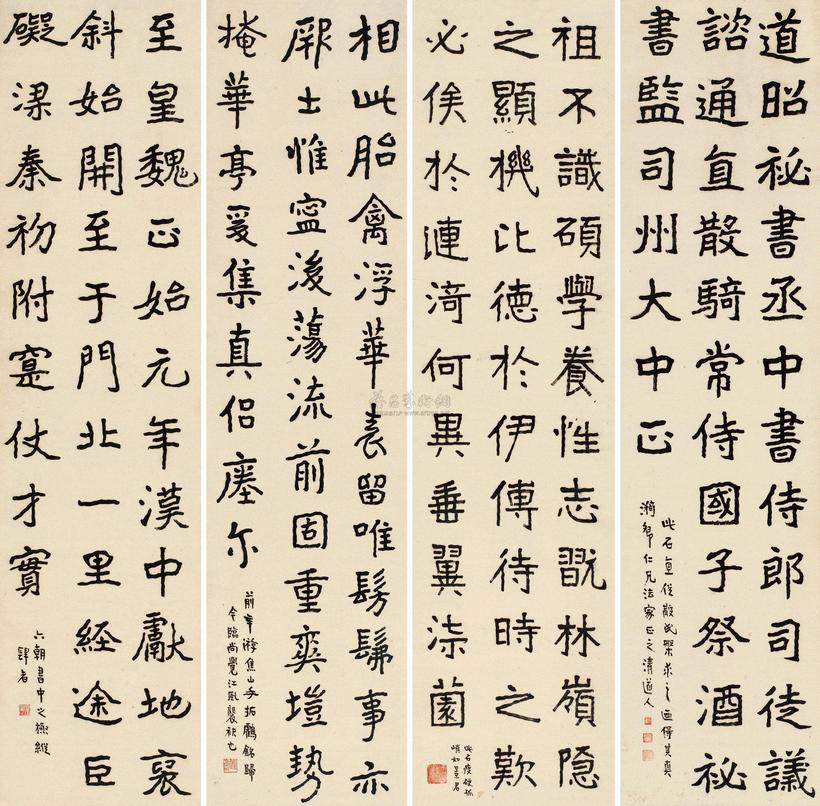 道昭祕書丞中書侍郎司徒議
諮通直散騎常侍國子祭酒祕
書監司州大中正
此石直從散氏槃求之迺得其真
仁兄法家正之清道人
祖不識碩學養性志翫林嶺隱
之顯機比德於伊傅待時之歎
必俟於漣漪何異垂翼柒園
此石瘦硬孤
峭如景君
相此胎禽浮華表留唯髣髴事亦
厥土惟寧後蕩流前固重爽塏勢
掩華亭爰集真侶瘞尔
前年游焦山手拓鶴銘歸
今臨尚覺江風襲袂也
至皇魏正始元年漢中獻地裒
斜始開至于門北一里経途巨
礙梁秦初附寔仗才實
六朝書中之極縱
肆者